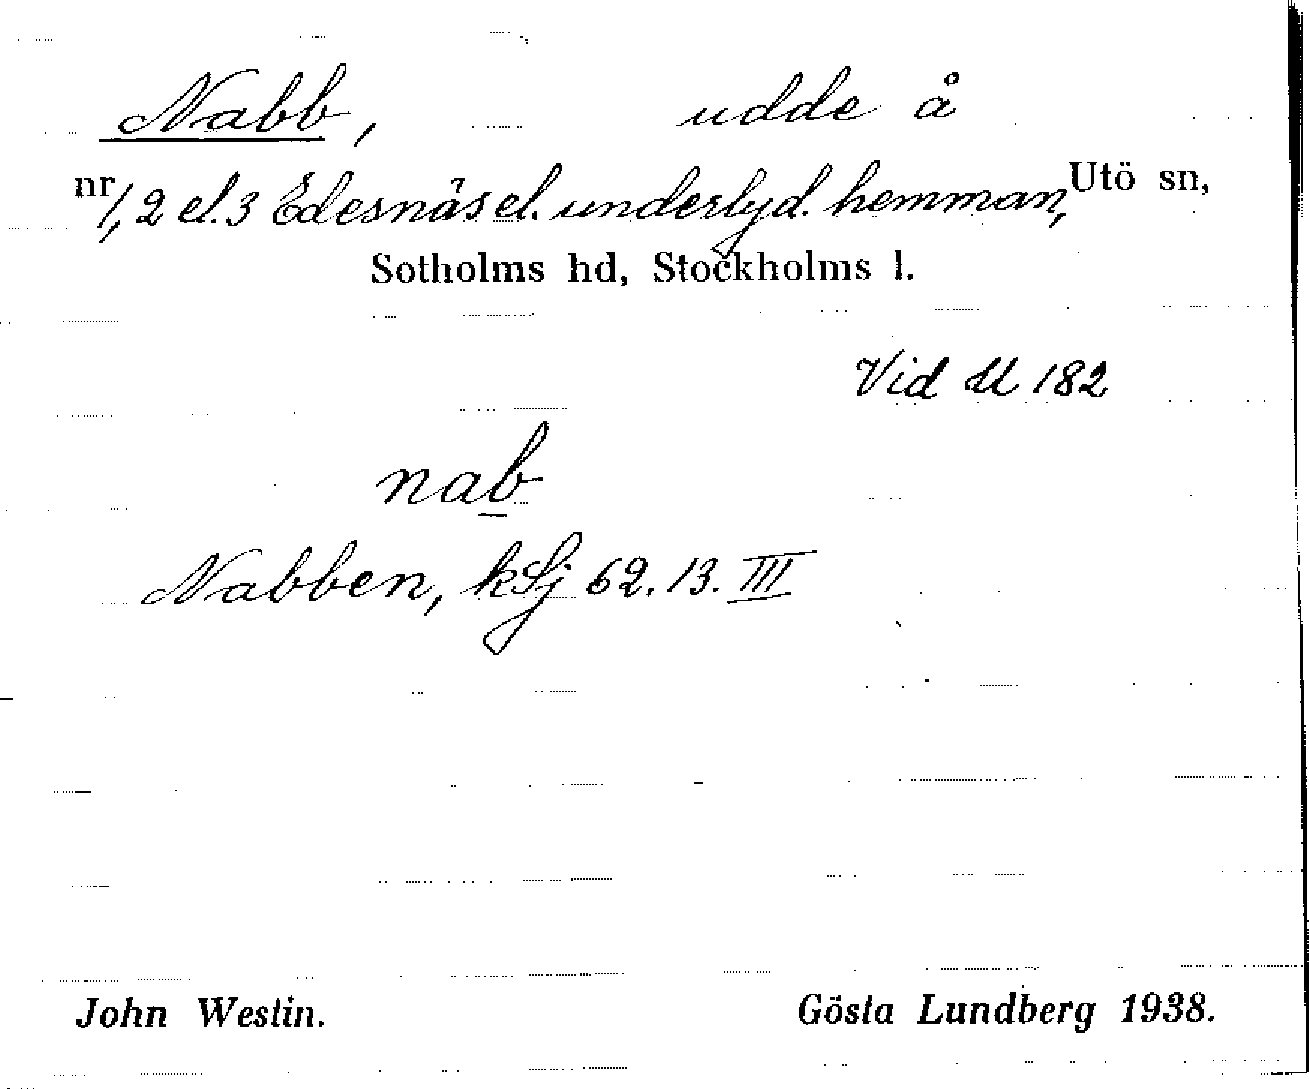 Nabb, udde å
nr 1, 2 el. 3 Edesnäs el. underlyd. hemman, Utö sn,
Sotholms hd, Stockholms l.
Vid U 182
nab
Nabben, kSj 62. 13. III
John Westin. Gösta Lundberg 1938.